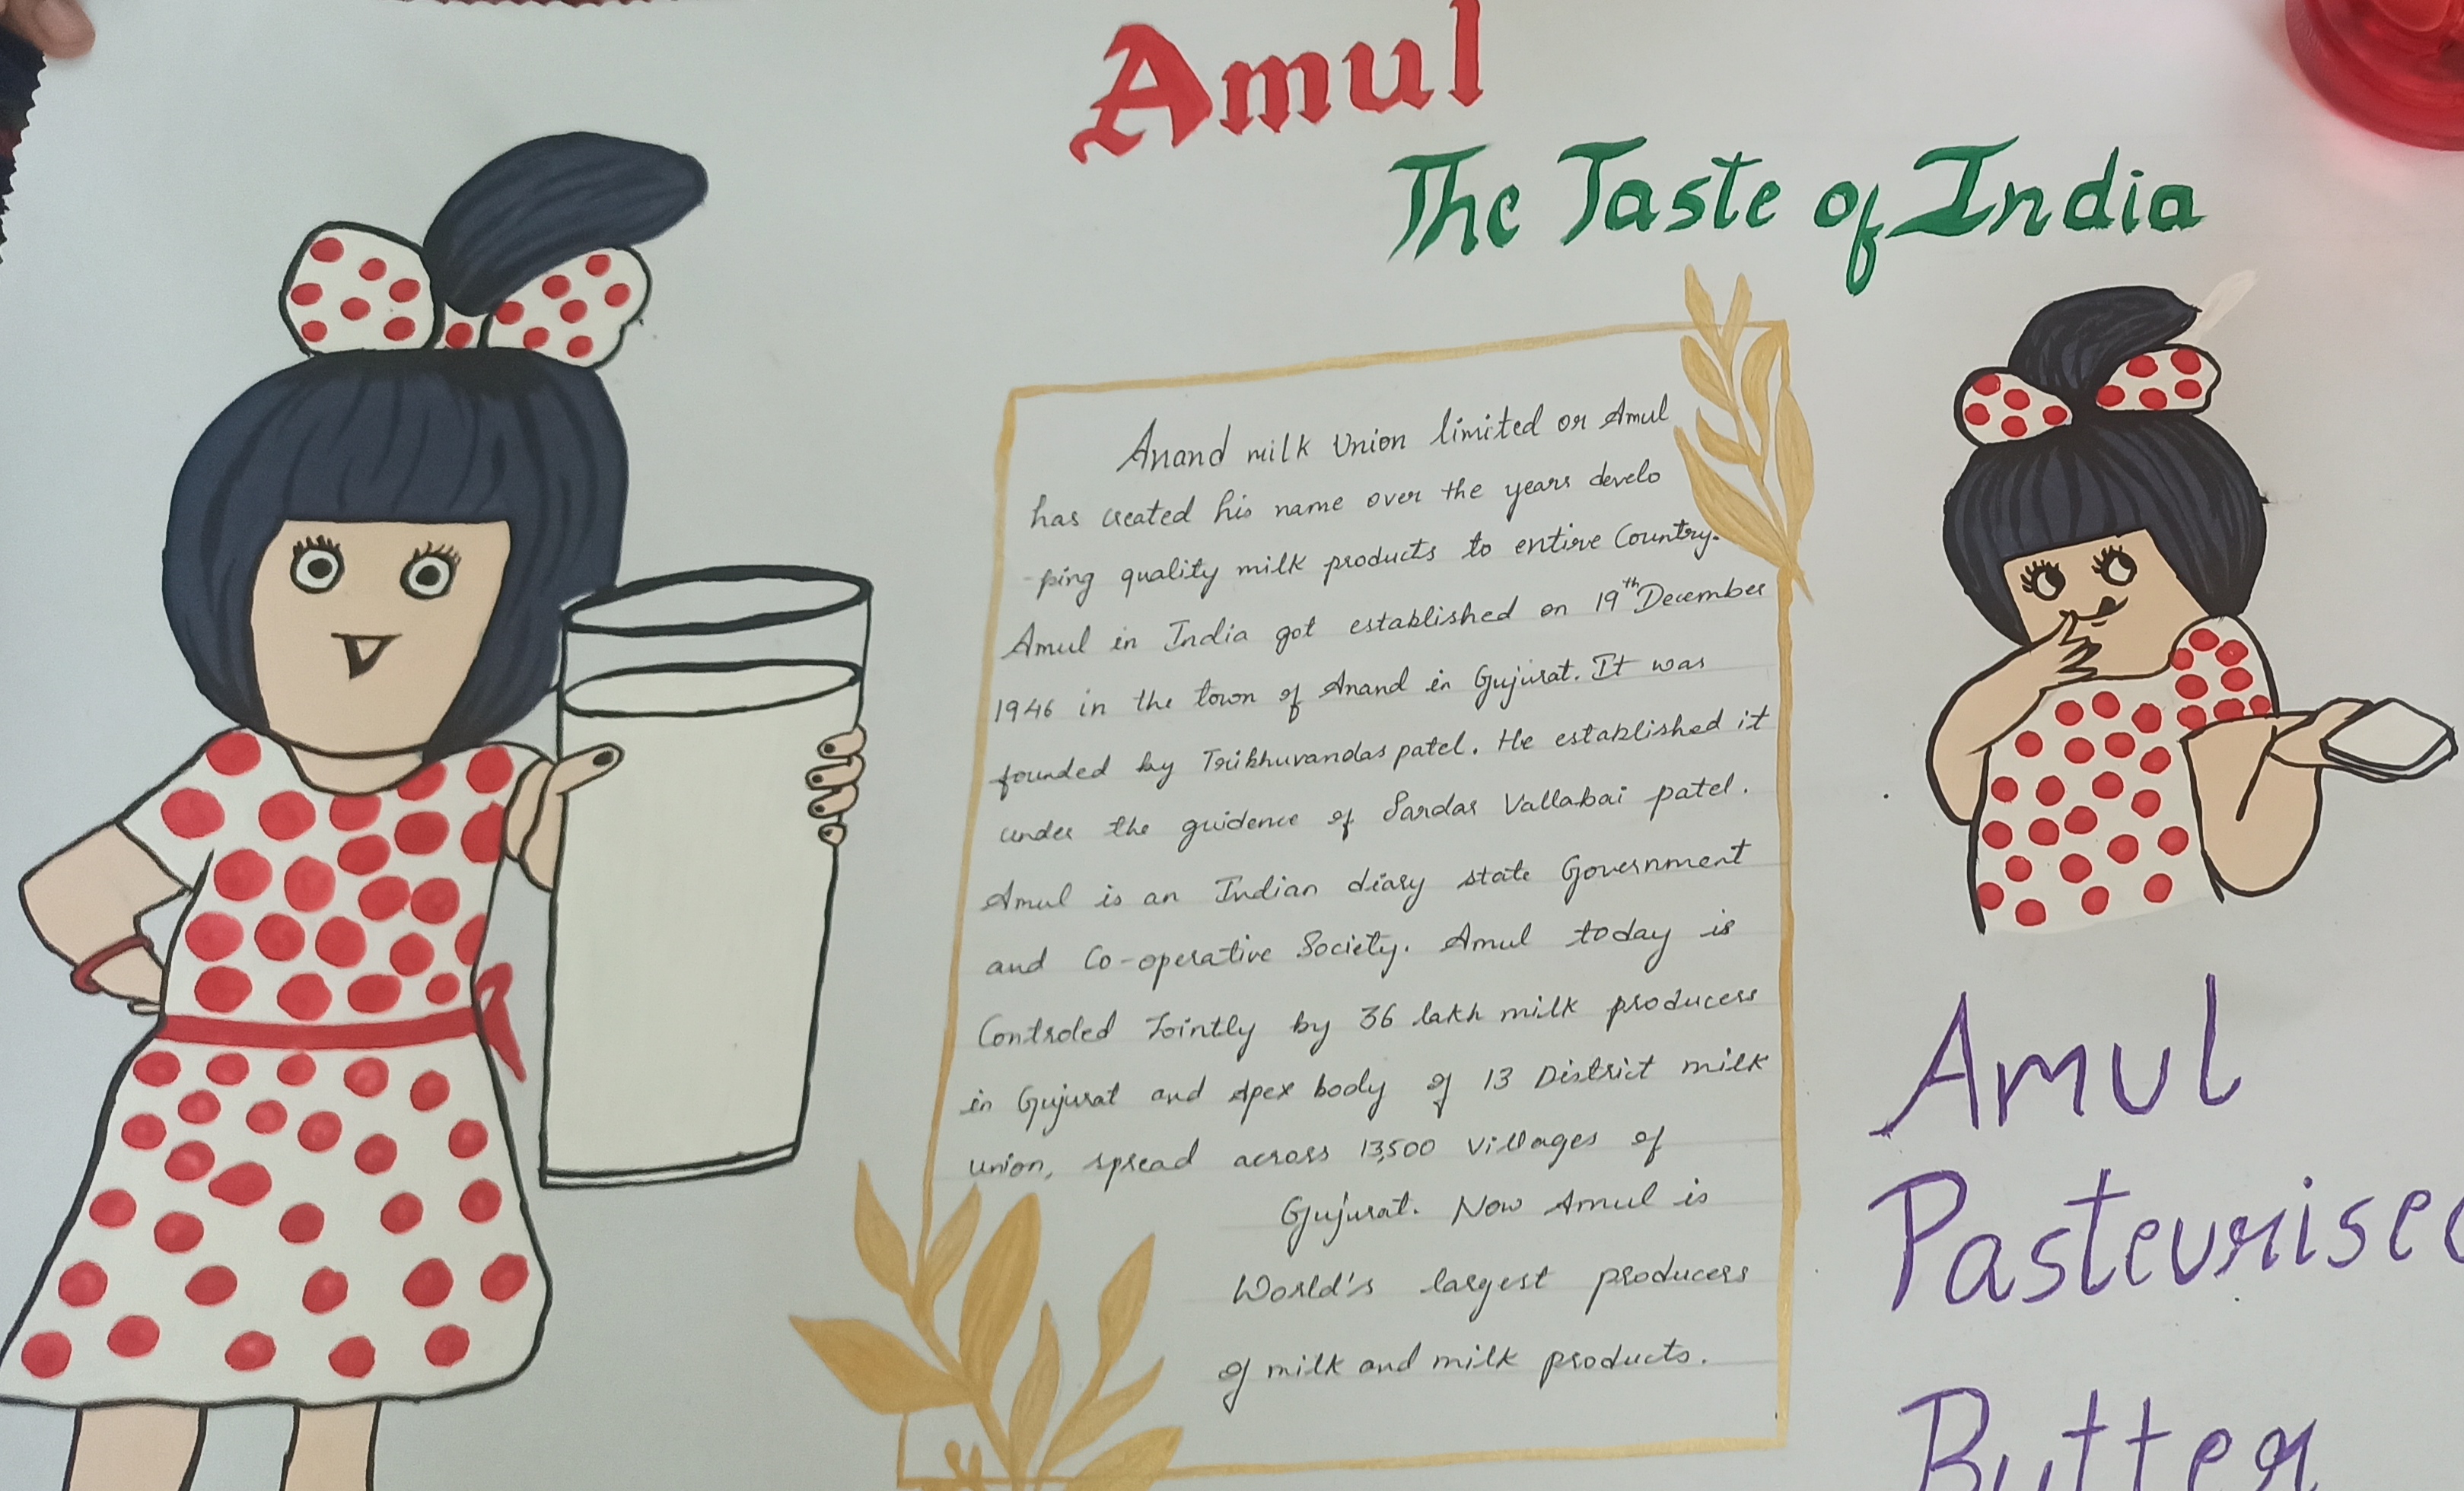 Amul
The Taste of India
Anand milk Union limited or Amul
has created his name over the years develo
-ping quality milk products to entire Country.
Amul in India got established on 19th December
1946 in the town of Anand in Gujurat. It was
founded by Tribhuvandas patel. He established it
under the guidence of Sardar Vallabai patel.
Amul is an Indian diary state Government
and Co-operative Society. Amul today is
Controled Jointly by 36 lakh milk producers
in Gujurat and Apex body of 13 District milk
union, spread across 13,500 villages of
Gujurat. Now Amul is
World's largest producers
of milk and milk products.
Amul
Pasteurised
Butter